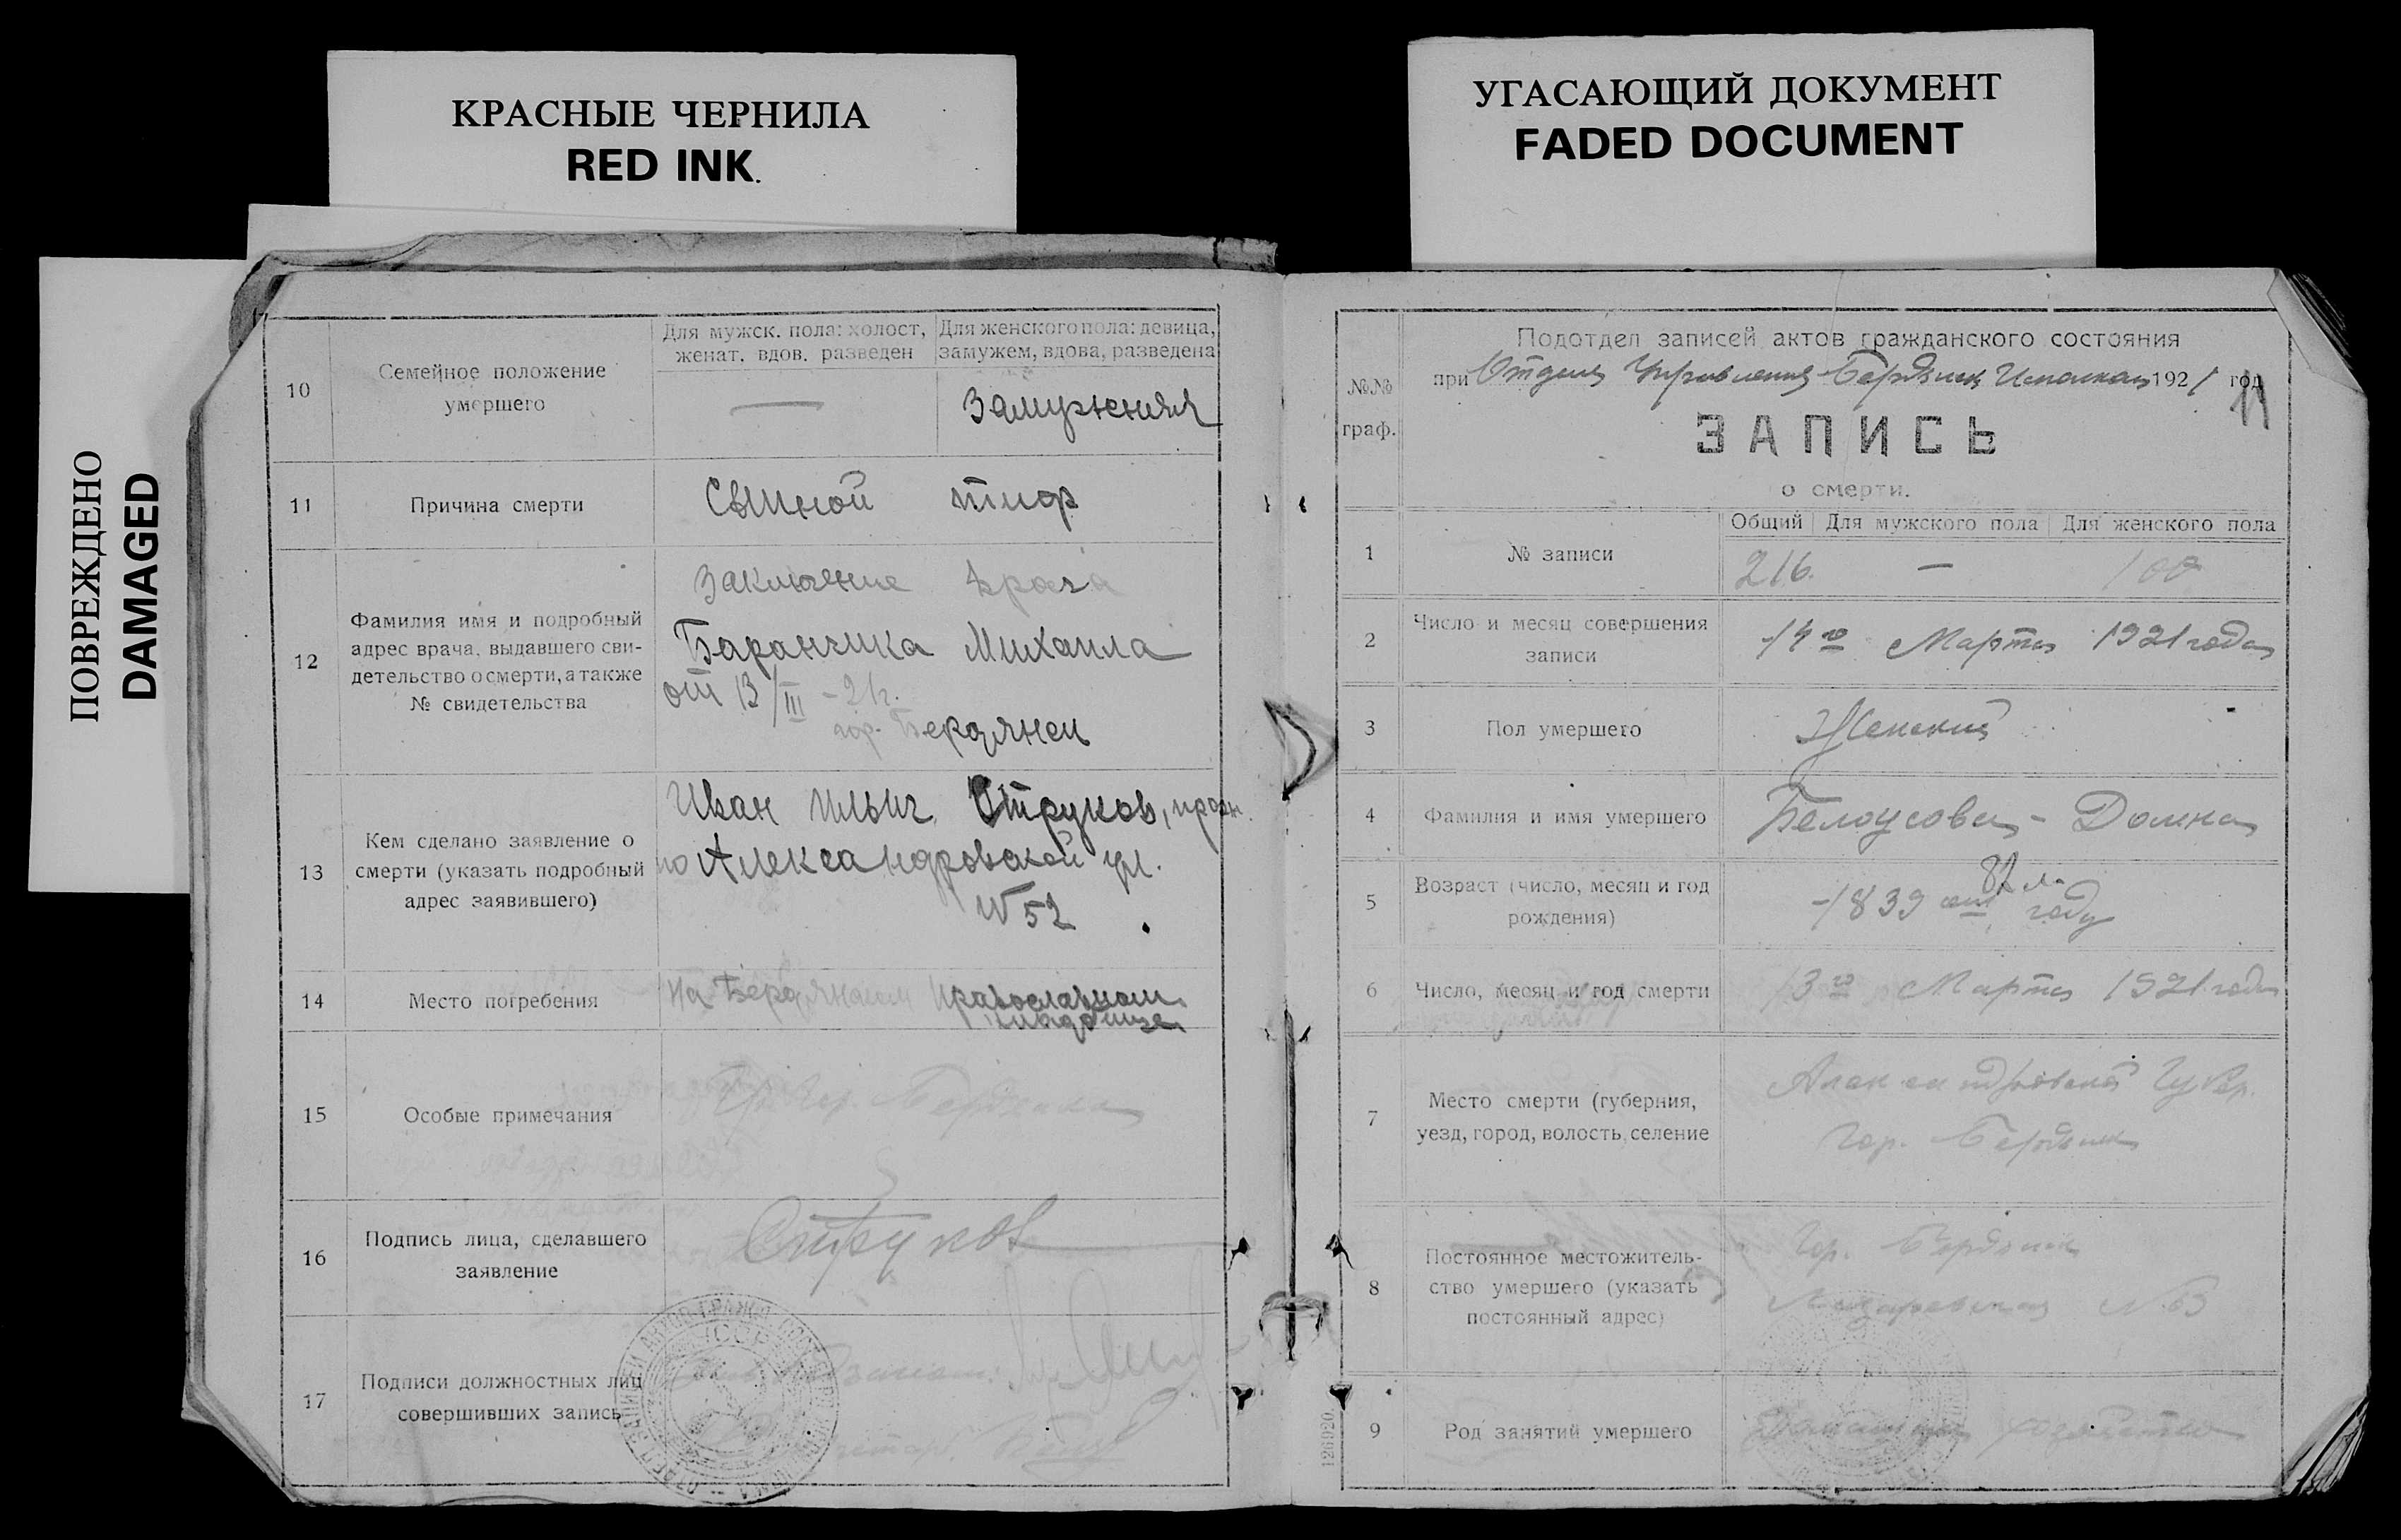 КРАСНЫЕ ЧЕРНИЛА
RED INK.
УГАСАЮЩИЙ ДОКУМЕНТ
FADED DOCUMENT
ПОВРЕЖДЕНО
DAMAGED
10
Семейное положение
умершего
Для мужск. пола: холост,
женат. вдов. разведен
Для женского пола: девица,
замужем, вдова, разведена
—
Замужняя
11
Причина смерти
Сыпной тиф
12
Фамилия имя и подробный
адрес врача, выдавшего сви-
детельство о смерти, а также
№ свидетельства
Заключение врача
Баранчика Михаила
от 13/III – 21г.
гор. Бердянск
13
Кем сделано заявление о
смерти (указать подробный
адрес заявившего)
Иван Ильич Струков, прож.
по Александровской ул.
№ 52
14
Место погребения
На Бердянском Православном
кладбище
15
Особые примечания
Гр. гор. Бердянска
16
Подпись лица, сделавшего
заявление
Струков
17
Подписи должностных лиц
совершивших запись
№№
граф.
Подотдел записей актов гражданского состояния
при Отделе Управления Бердянск Исполкома 1921 год
11
ЗАПИСЬ
о смерти.
1
№ записи
Общий
Для мужского пола
Для женского пола
216.
—
100
2
Число и месяц совершения
записи
14го Марта 1921 года
3
Пол умершего
Женский
4
Фамилия и имя умершего
Белоусова - Домна
5
Возраст (число, месяц и год
рождения)
82 л.
1839 году
6
Число, месяц и год смерти
13го Марта 1921 года
7
Место смерти (губерния,
уезд, город, волость, селение
Александровской Губер.
гор. Бердянск
8
Постоянное местожитель-
ство умершего (указать
постоянный адрес)
Гор. Бердянск
№ 63
9
Род занятий умершего
Домашнее хозяйство
126920